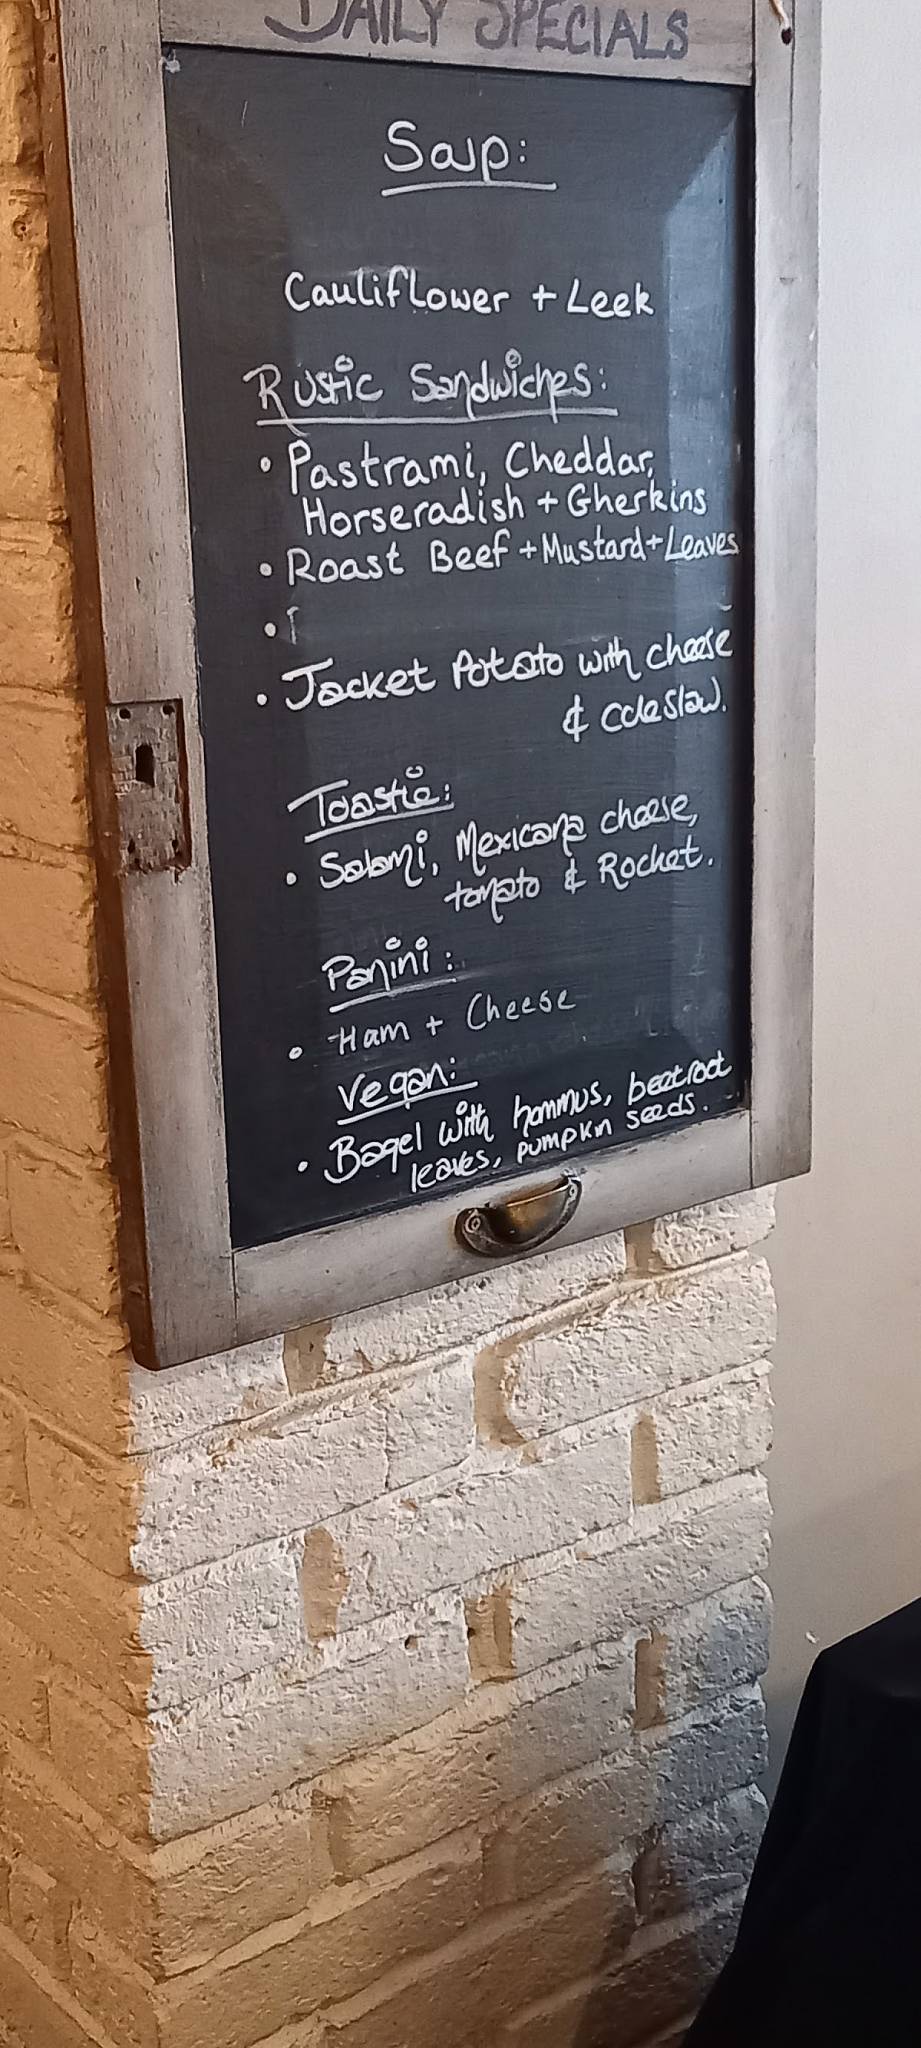 DAILY SPECIALS
Soup:
Cauliflower + Leek
Rustic Sandwiches:
• Pastrami, Cheddar,
Horseradish + Gherkins
• Roast Beef + Mustard + Leaves
•
• Jacket Potato with cheese
& coleslaw.
Toastie:
• Salami, Mexicana cheese,
tomato & Rocket.
Panini:
• Ham + Cheese
Vegan:
• Bagel with hommus, beetroot
leaves, pumpkin seeds.